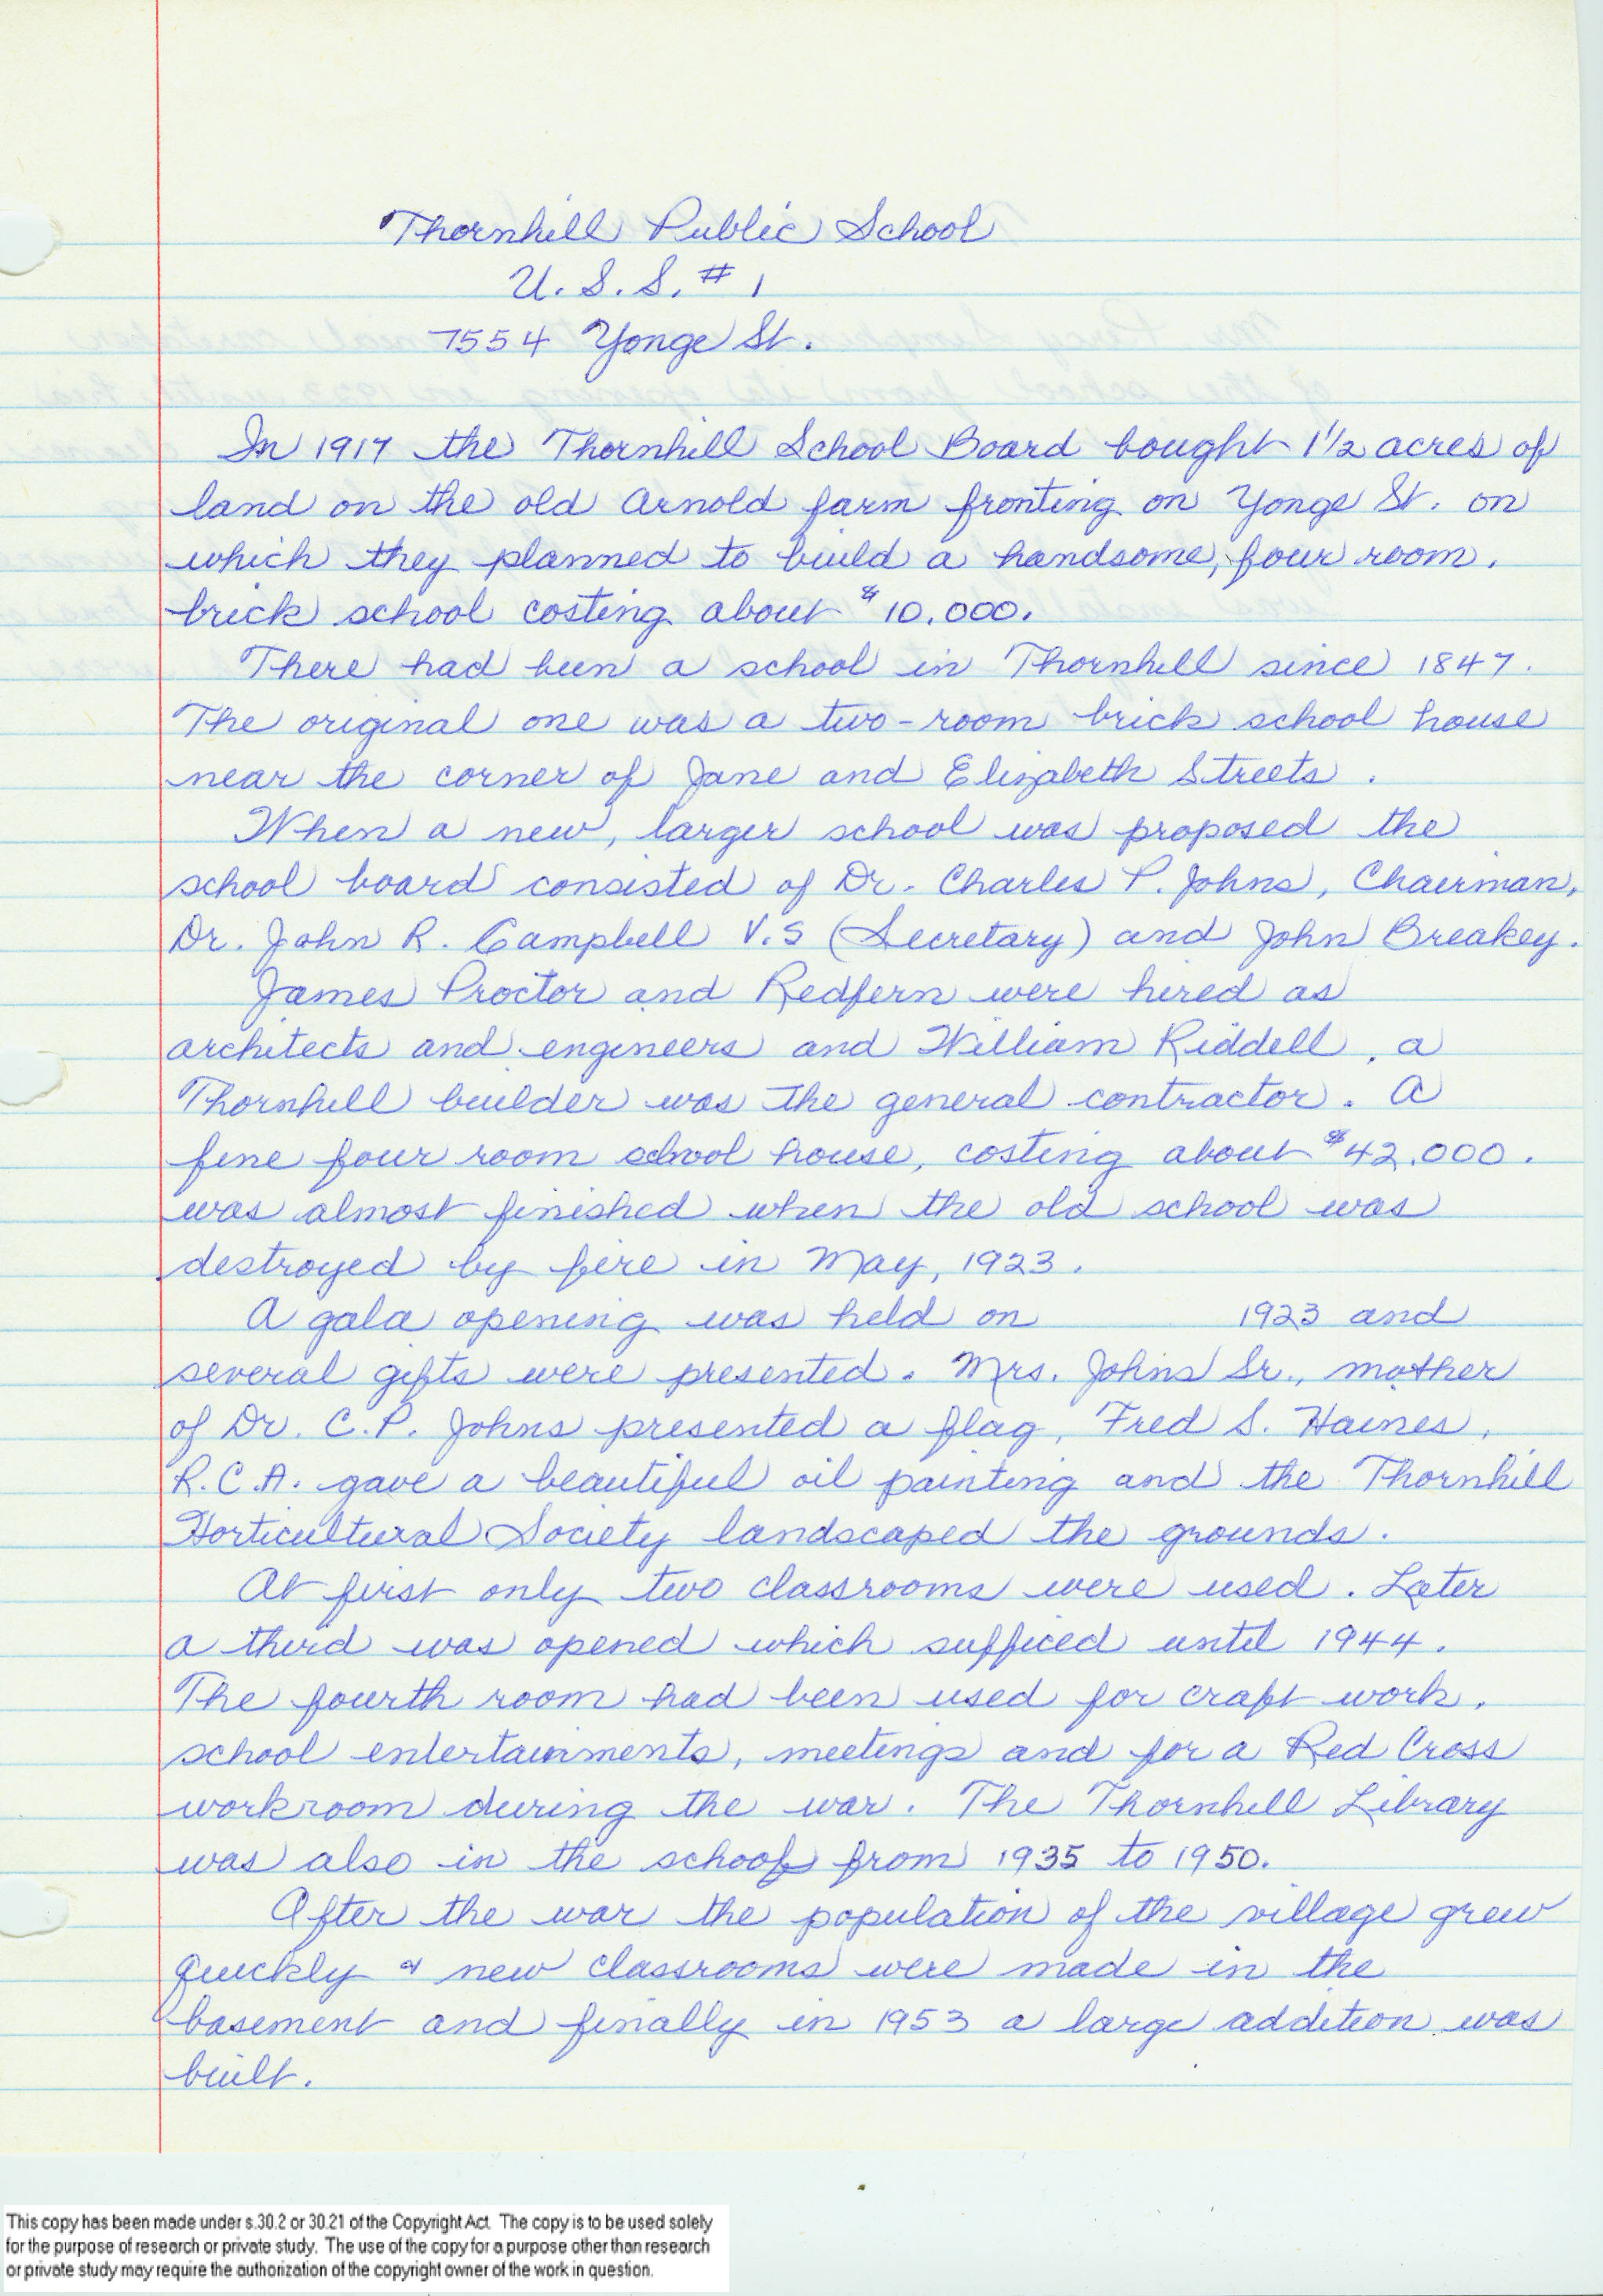 Thornhill Public School
U. S. S. # 1
7554 Yonge St.
In 1917 the Thornhill School Board bought 1 1/2 acres of
land on the old Arnold farm fronting on Yonge St. on
which they planned to build a handsome, four room,
brick school costing about $10,000.
There had been a school in Thornhill since 1847.
The original one was a two-room brick school house
near the corner of Jane and Elizabeth Streets.
When a new, larger school was proposed the
school board consisted of Dr. Charles P. Johns, Chairman,
Dr. John R. Campbell V.S (Secretary) and John Breakey.
James Proctor and Redfern were hired as
architects and engineers and William Riddell, a
Thornhill builder was the general contractor. A
fine four room school house, costing about $42,000.
was almost finished when the old school was
destroyed by fire in May, 1923.
A gala opening was held on 1923 and
several gifts were presented. Mrs. Johns Sr., mother
of Dr. C. P. Johns presented a flag, Fred S. Haines,
R.C.A. gave a beautiful oil painting and the Thornhill
Horticultural Society landscaped the grounds.
At first only two classrooms were used. Later
a third was opened which sufficed until 1944.
The fourth room had been used for craft work,
school entertainments, meetings and for a Red Cross
workroom during the war. The Thornhill Library
was also in the school from 1935 to 1950.
After the war the population of the village grew
quickly & new classrooms were made in the
basement and finally in 1953 a large addition was
built.
This copy has been made under s.30.2 or 30.21 of the Copyright Act. The copy is to be used solely
for the purpose of research or private study. The use of the copy for a purpose other than research
or private study may require the authorization of the copyright owner of the work in question.